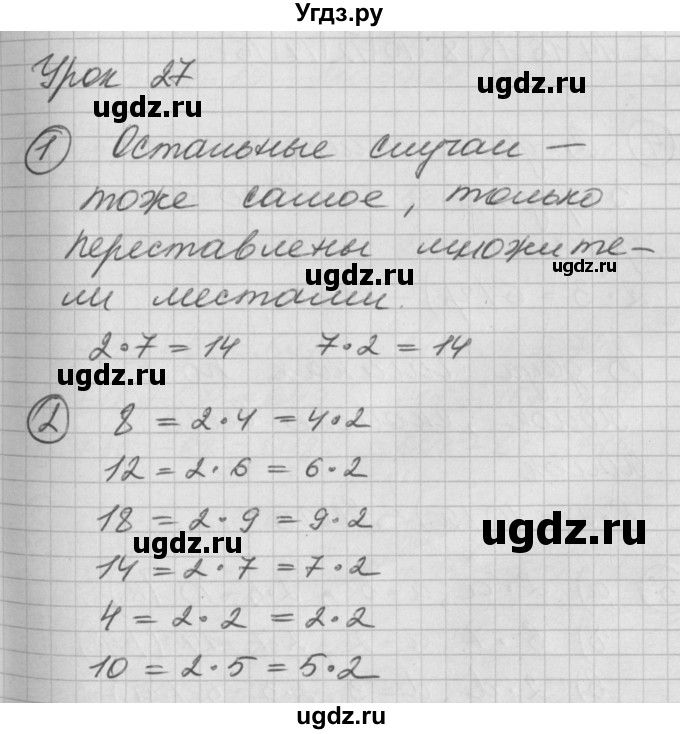 Угдз.ру
Урок 27
ugdz.ru
1 Остальные случаи —
тоже самое, только
переставлены множите-
ugdz.ru ugdz.ru
ли местами.
2·7=14 7·2=14
ugdz.ru
2 8 = 2·4 = 4·2
12 = 2·6 = 6·2
18 = 2·9 = 9·2
ugdz.ru ugdz.ru
14 = 2·7 = 7·2
4 = 2·2 = 2·2
10 = 2·5 = 5·2
ugdz.ru